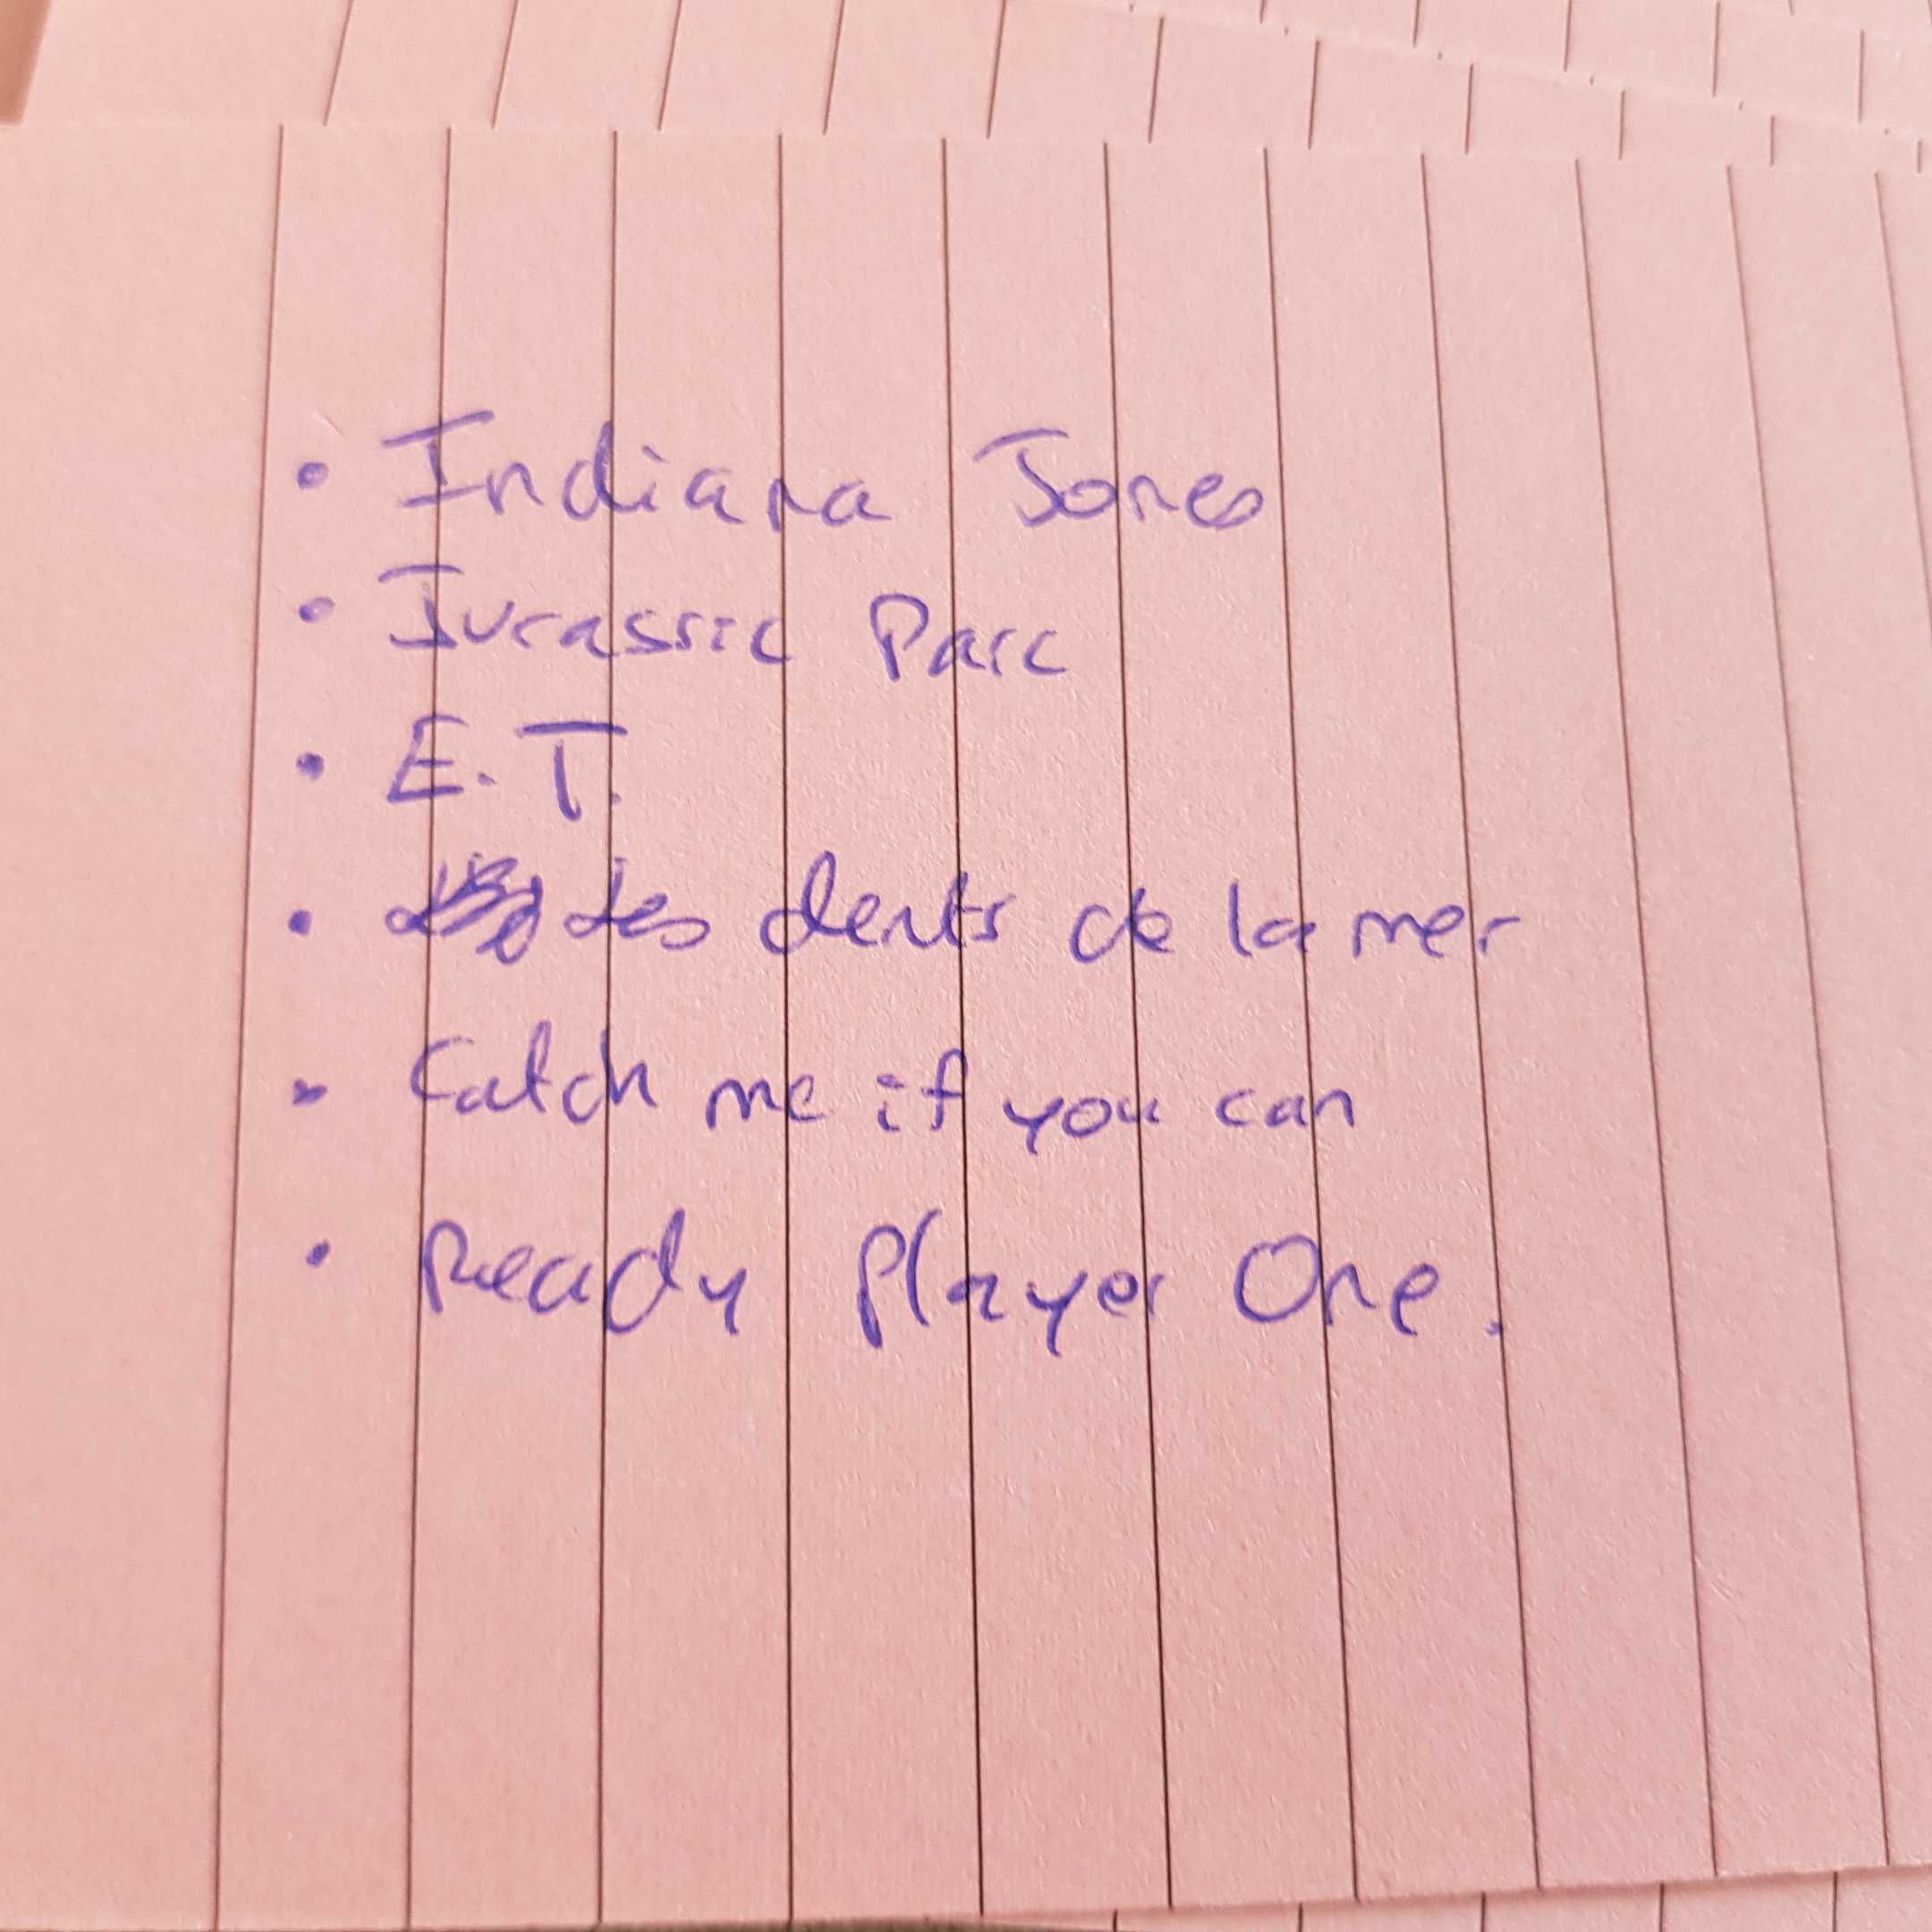 • Indiana Jones
• Jurassic Parc
• E.T.
• Les dents de la mer
• Catch me if you can
• Ready Player One.